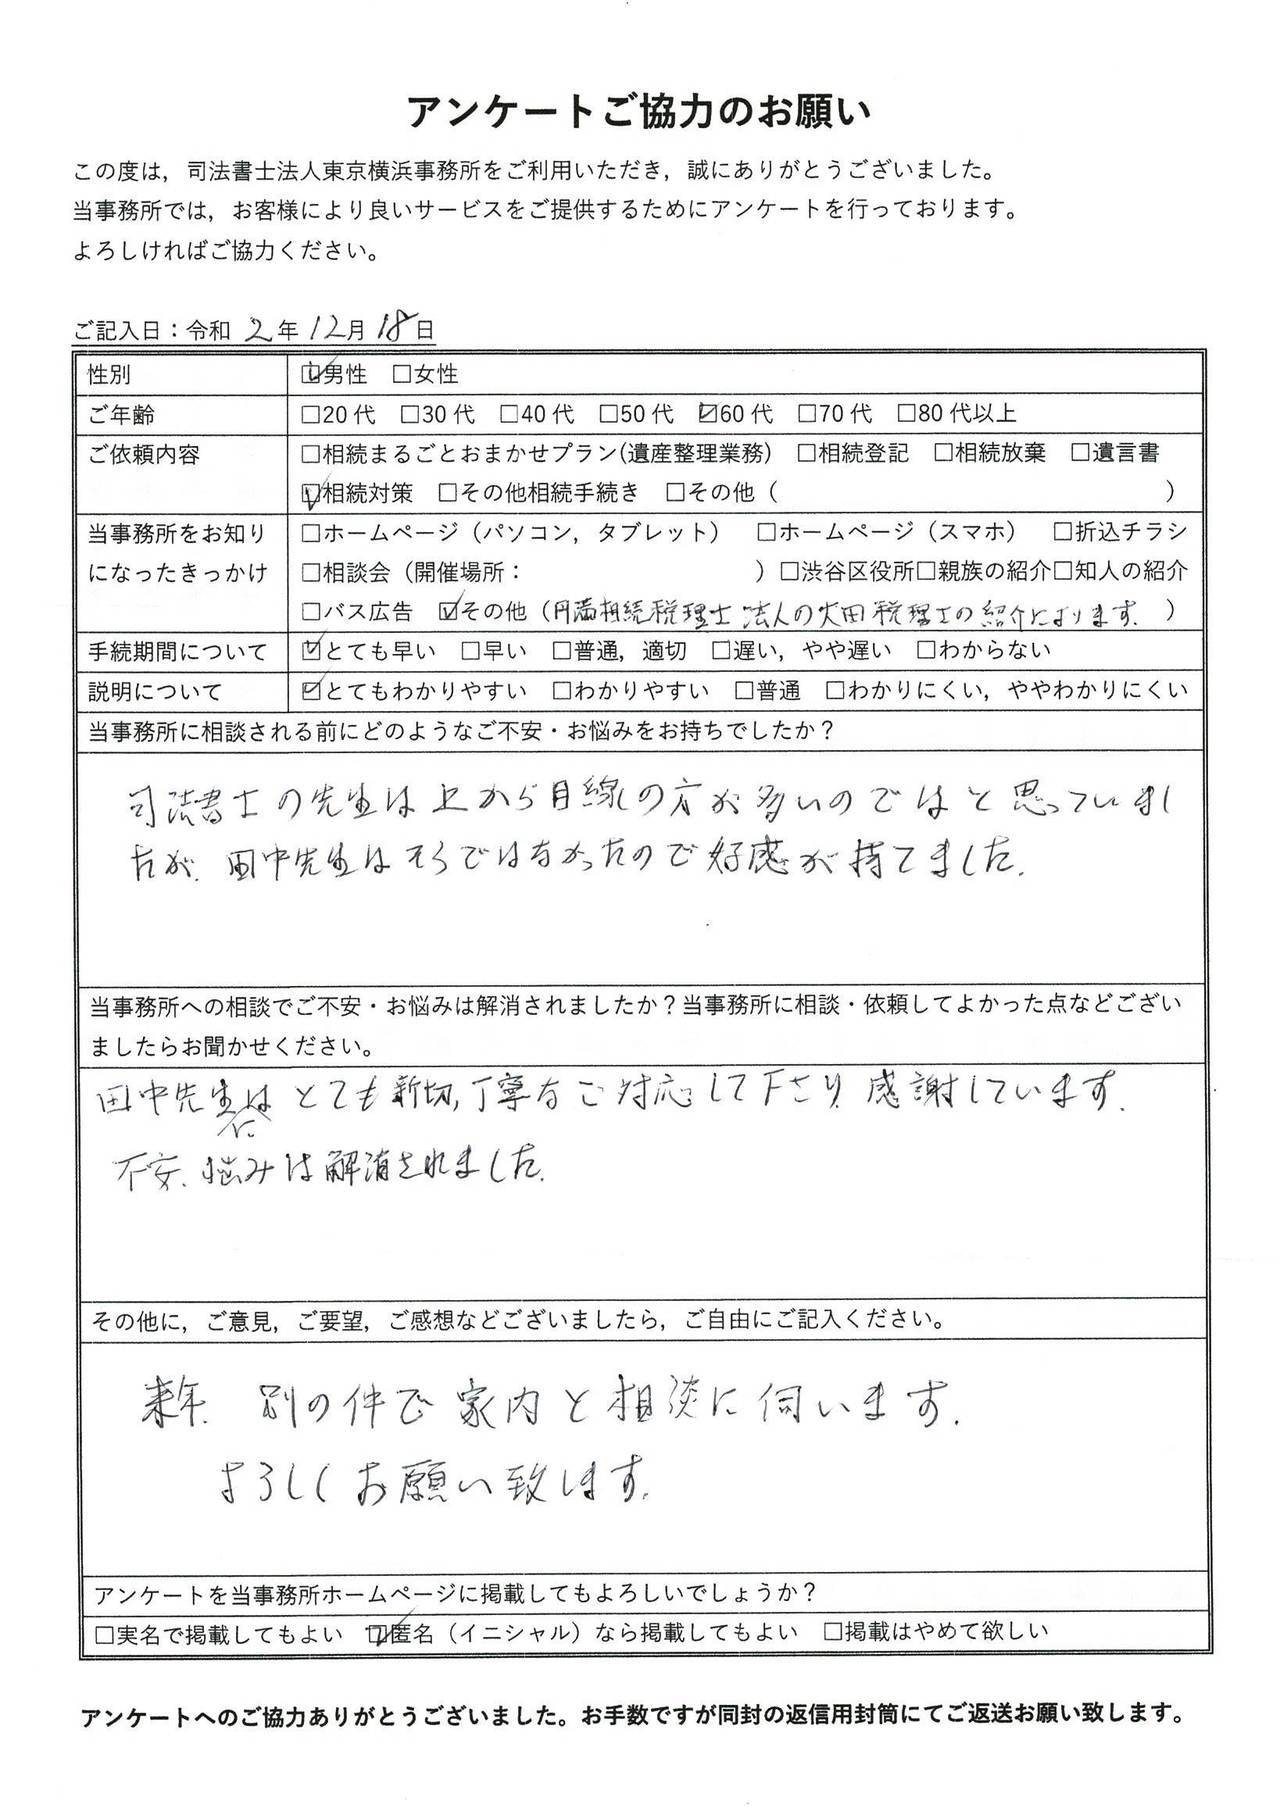 アンケートご協力のお願い
この度は，司法書士法人東京横浜事務所をご利用いただき，誠にありがとうございました。
当事務所では，お客様により良いサービスをご提供するためにアンケートを行っております。
よろしければご協力ください。
ご記入日：令和 2 年 12 月 18 日
性別 ☑男性 □女性
ご年齢 □20代 □30代 □40代 □50代 ☑60代 □70代 □80代以上
ご依頼内容 □相続まるごとおまかせプラン(遺産整理業務) □相続登記 □相続放棄 □遺言書
☑相続対策 □その他相続手続き □その他（ ）
当事務所をお知り □ホームページ（パソコン，タブレット） □ホームページ（スマホ） □折込チラシ
になったきっかけ □相談会（開催場所： ）□渋谷区役所□親族の紹介□知人の紹介
□バス広告 ☑その他（円満相続税理士法人の大田税理士の紹介によります。）
手続期間について ☑とても早い □早い □普通，適切 □遅い，やや遅い □わからない
説明について ☑とてもわかりやすい □わかりやすい □普通 □わかりにくい，ややわかりにくい
当事務所に相談される前にどのようなご不安・お悩みをお持ちでしたか？
司法書士の先生は上から目線の方が多いのではと思っていまし
たが、田中先生はそうではなかったので好感が持てました。
当事務所への相談でご不安・お悩みは解消されましたか？当事務所に相談・依頼してよかった点などござい
ましたらお聞かせください。
田中先生にはとても新切、丁寧なご対応して下さり感謝しています。
不安、悩みは解消されました。
その他に，ご意見，ご要望，ご感想などございましたら，ご自由にご記入ください。
来年、別の件で家内と相談に伺います。
よろしくお願い致します。
アンケートを当事務所ホームページに掲載してもよろしいでしょうか？
□実名で掲載してもよい ☑匿名（イニシャル）なら掲載してもよい □掲載はやめて欲しい
アンケートへのご協力ありがとうございました。お手数ですが同封の返信用封筒にてご返送お願い致します。